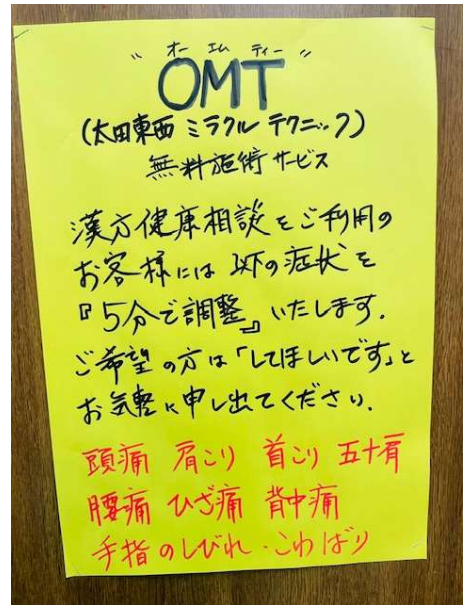 オー エム ティー
"OMT"
(太田東西ミラクルテクニック)
無料施術サービス
漢方健康相談をご利用の
お客様には以下の症状を
『5分で調整』いたします.
ご希望の方は「してほしいです」と
お気軽に申し出てください.
頭痛 肩こり 首こり 五十肩
腰痛 ひざ痛 背中痛
手指のしびれ・こわばり